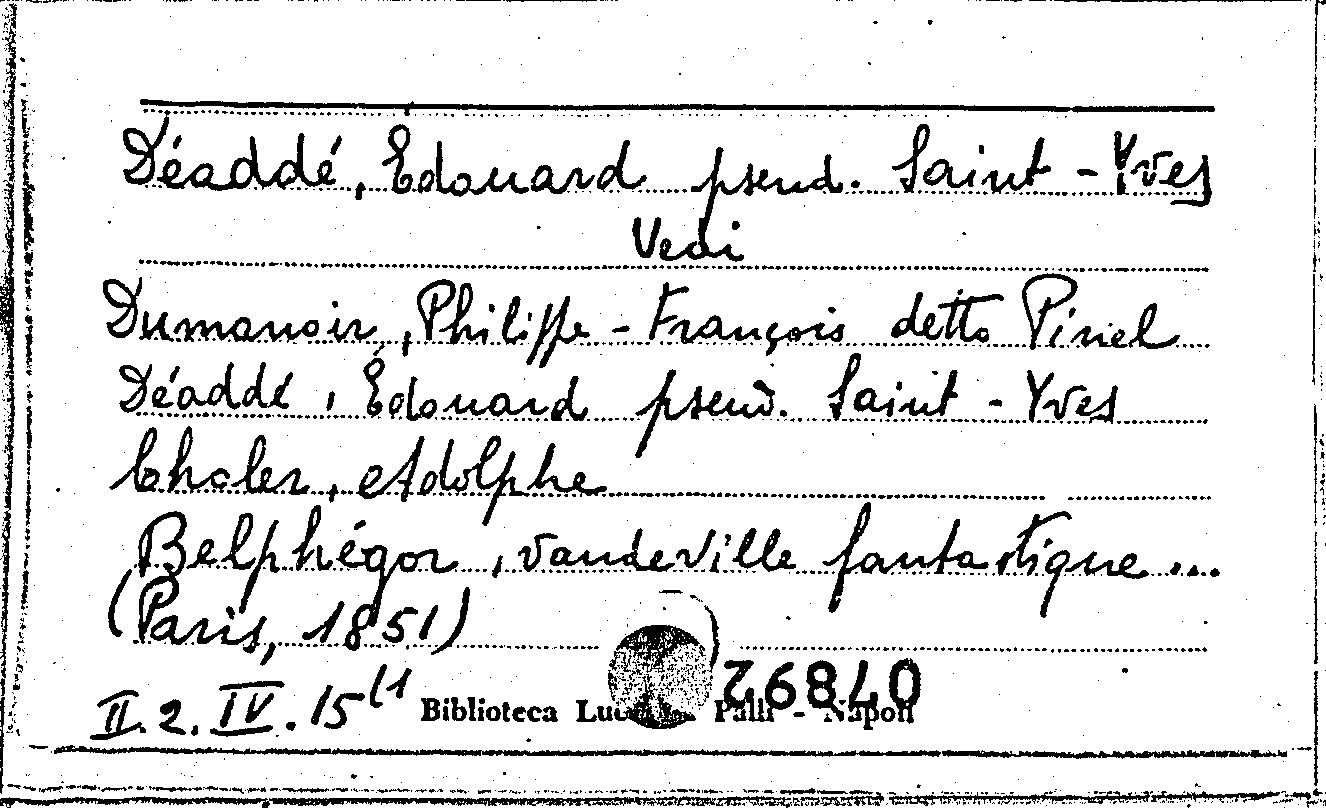 Déaddé, Édouard pseud. Saint-Yves
Vedi
Dumanoir, Philippe-François detto Pinel
Déaddé, Édouard pseud. Saint-Yves
Choler, Adolphe
Belphégor, vaudeville fantastique...
(Paris, 1851)
II.2.IV.15(1
Biblioteca Palli - Napoli